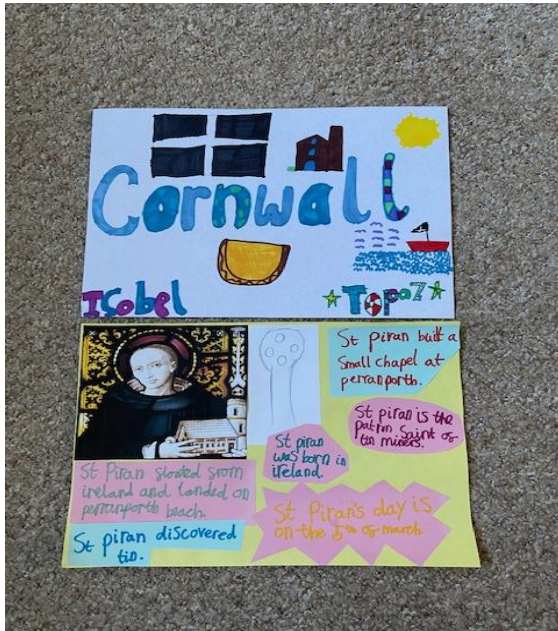 Cornwall
Isobel
Topaz
St Piran built a
small chapel at
perranporth.
St piran is the
patron Saint of
tin miners.
St piran
was born in
ireland.
St Piran floated from
ireland and landed on
perranporth beach.
St Piran's day is
on the 5th of march
St piran discovered
tin.